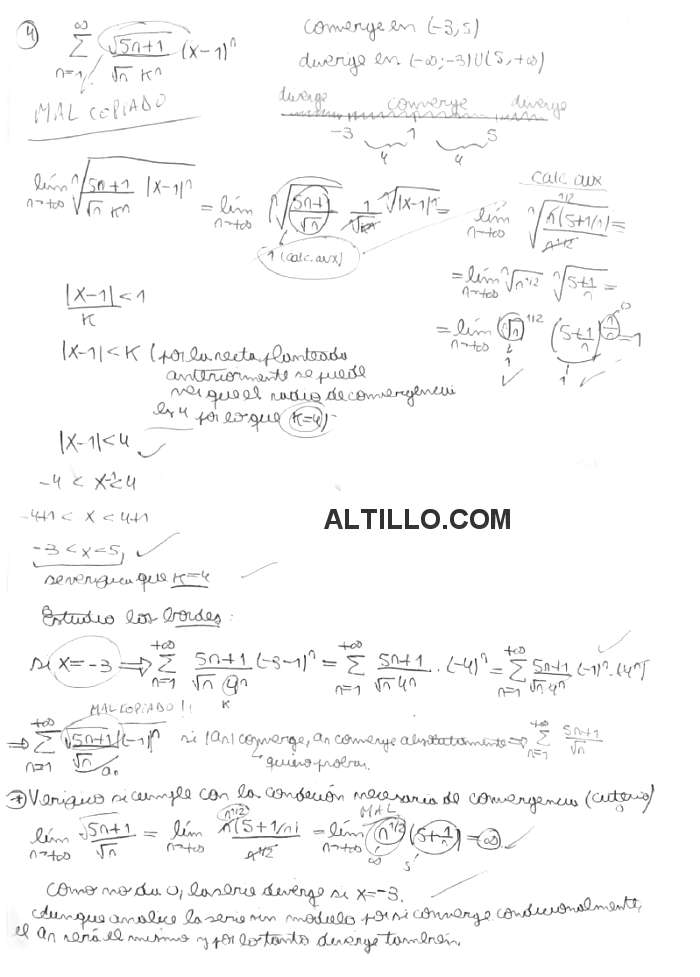 4) ∑_{n=1}^{∞} √5n+1 / √n kⁿ (x-1)ⁿ
converge en (-3, 5)
diverge en (-∞; -3) U (5, +∞)
MAL COPIADO
diverge converge diverge
-3 1 5
4 4
lím_{n→+∞} ⁿ√(5n+1 / √n kⁿ |x-1|ⁿ) = lím_{n→+∞} ⁿ√(5n+1 / √n) 1/ⁿ√kⁿ ⁿ√|x-1|ⁿ =
1 (calc. aux)
calc aux
lím_{n→+∞} ⁿ√(n(5+1/n) / n^{1/2}) =
= lím_{n→+∞} ⁿ√n^{1/2} ⁿ√(5+1/n) =
= lím_{n→+∞} (ⁿ√n)^{1/2} (5+1/n)^{1/n} = 1
1 1
|x-1| / k < 1
|x-1| < k (por la recta planteada
anteriormente se puede
ver que el radio de convergencia
es 4 por lo que k=4)
|x-1| < 4
-4 < x-1 < 4
-4+1 < x < 4+1
-3 < x < 5,
se verifica que k=4
ALTILLO.COM
Estudio los bordes:
si x=-3 ⟹ ∑_{n=1}^{+∞} 5n+1 / √n 4ⁿ (-3-1)ⁿ = ∑_{n=1}^{+∞} 5n+1 / √n 4ⁿ · (-4)ⁿ = ∑_{n=1}^{+∞} 5n+1 / √n 4ⁿ (-1)ⁿ·(4ⁿ)
k
MAL COPIADO!!
⟹ ∑_{n=1}^{+∞} √5n+1 / √n (-1)ⁿ si |an| converge, an converge absolutamente ⟹ ∑_{n=1}^{+∞} 5n+1 / √n
an
quiero probar
Verifico si cumple con la condición necesaria de convergencia (criterio)
MAL
lím_{n→+∞} √5n+1 / √n = lím_{n→+∞} n(5+1/n) / n^{1/2} = lím_{n→+∞} n^{1/2} (5+1/n) = ∞
∞ 5
Como no da 0, la serie diverge si x=-3.
Aunque analice la serie sin modulo por si converge condicionalmente,
el an será el mismo y por lo tanto diverge también.